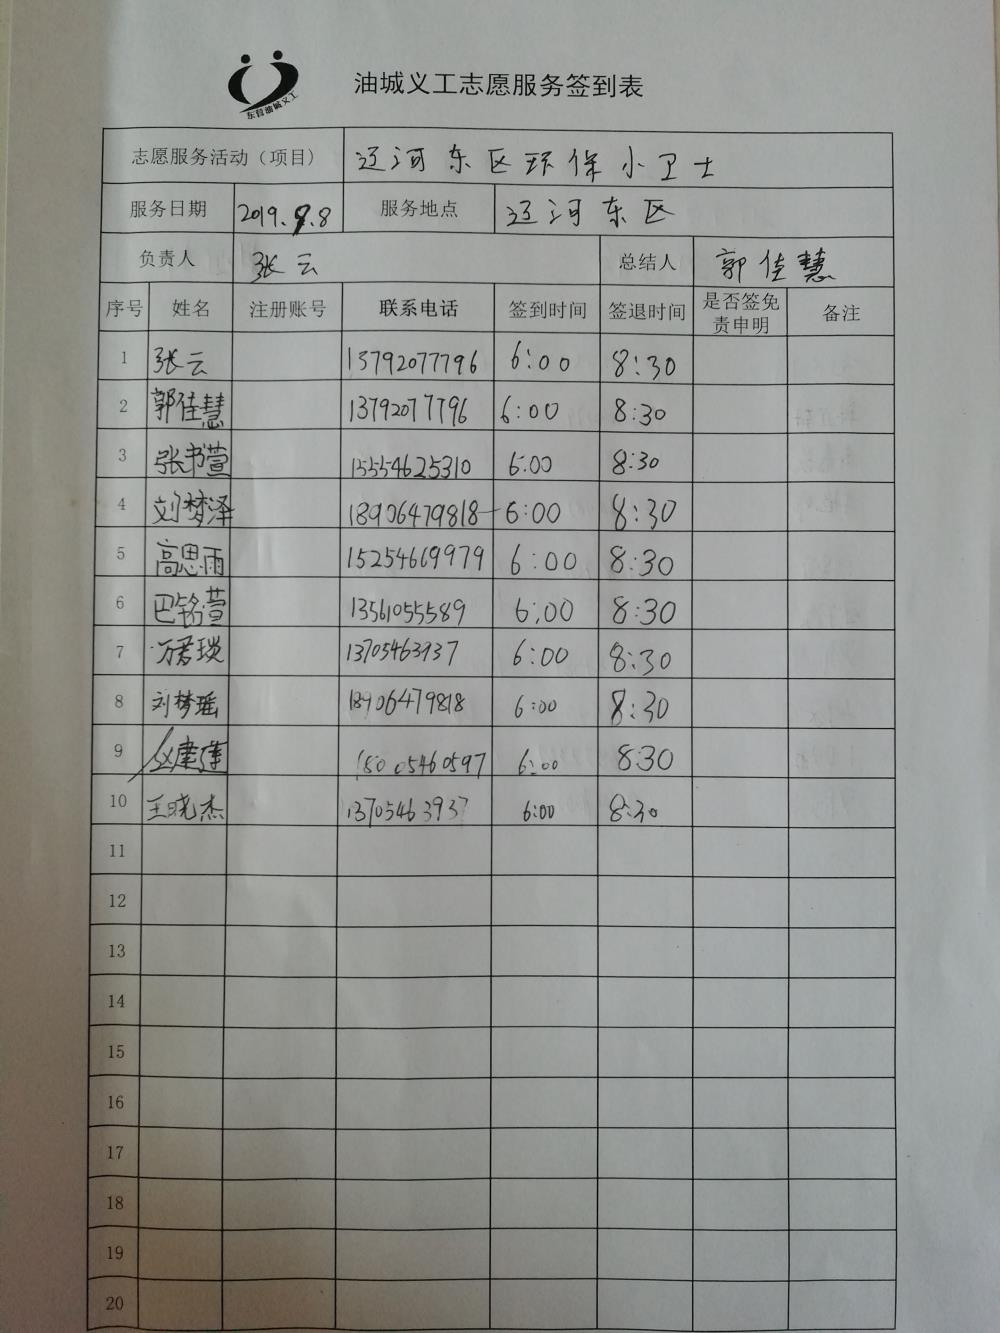 东营油城义工
油城义工志愿服务签到表
志愿服务活动（项目） 辽河东区环保小卫士
服务日期 2019.9.8 服务地点 辽河东区
负责人 张云 总结人 郭佳慧
序号 姓名 注册账号 联系电话 签到时间 签退时间 是否签免责申明 备注
1 张云 13792077796 6:00 8:30
2 郭佳慧 13792077796 6:00 8:30
3 张书萱 15554625310 6:00 8:30
4 刘梦泽 18906479818 6:00 8:30
5 高思雨 15254669979 6:00 8:30
6 巴铭萱 13561055589 6:00 8:30
7 万若琰 13705463937 6:00 8:30
8 刘梦瑶 18906479818 6:00 8:30
9 赵建莲 18005460597 6:00 8:30
10 王晓杰 13705463937 6:00 8:30
11
12
13
14
15
16
17
18
19
20